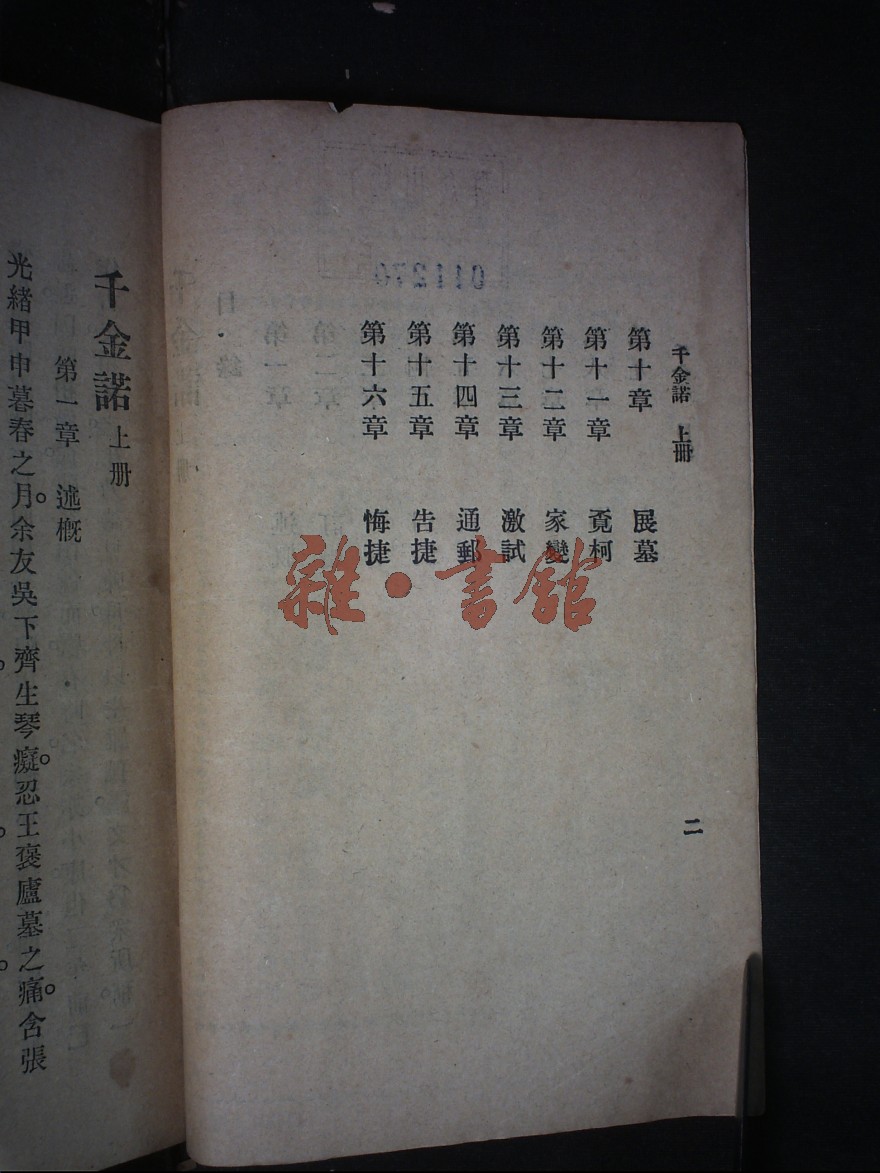 千金諾　上冊
第十章　展墓
第十一章　覓柯
第十二章　家變
第十三章　激試
第十四章　通郵
第十五章　告捷
第十六章　悔捷
二
011270
雜·書館
千金諾 上册
第一章　述概
光緒甲申暮春之月。余友吳下齊生琴癡。忍王裒廬墓之痛。含張